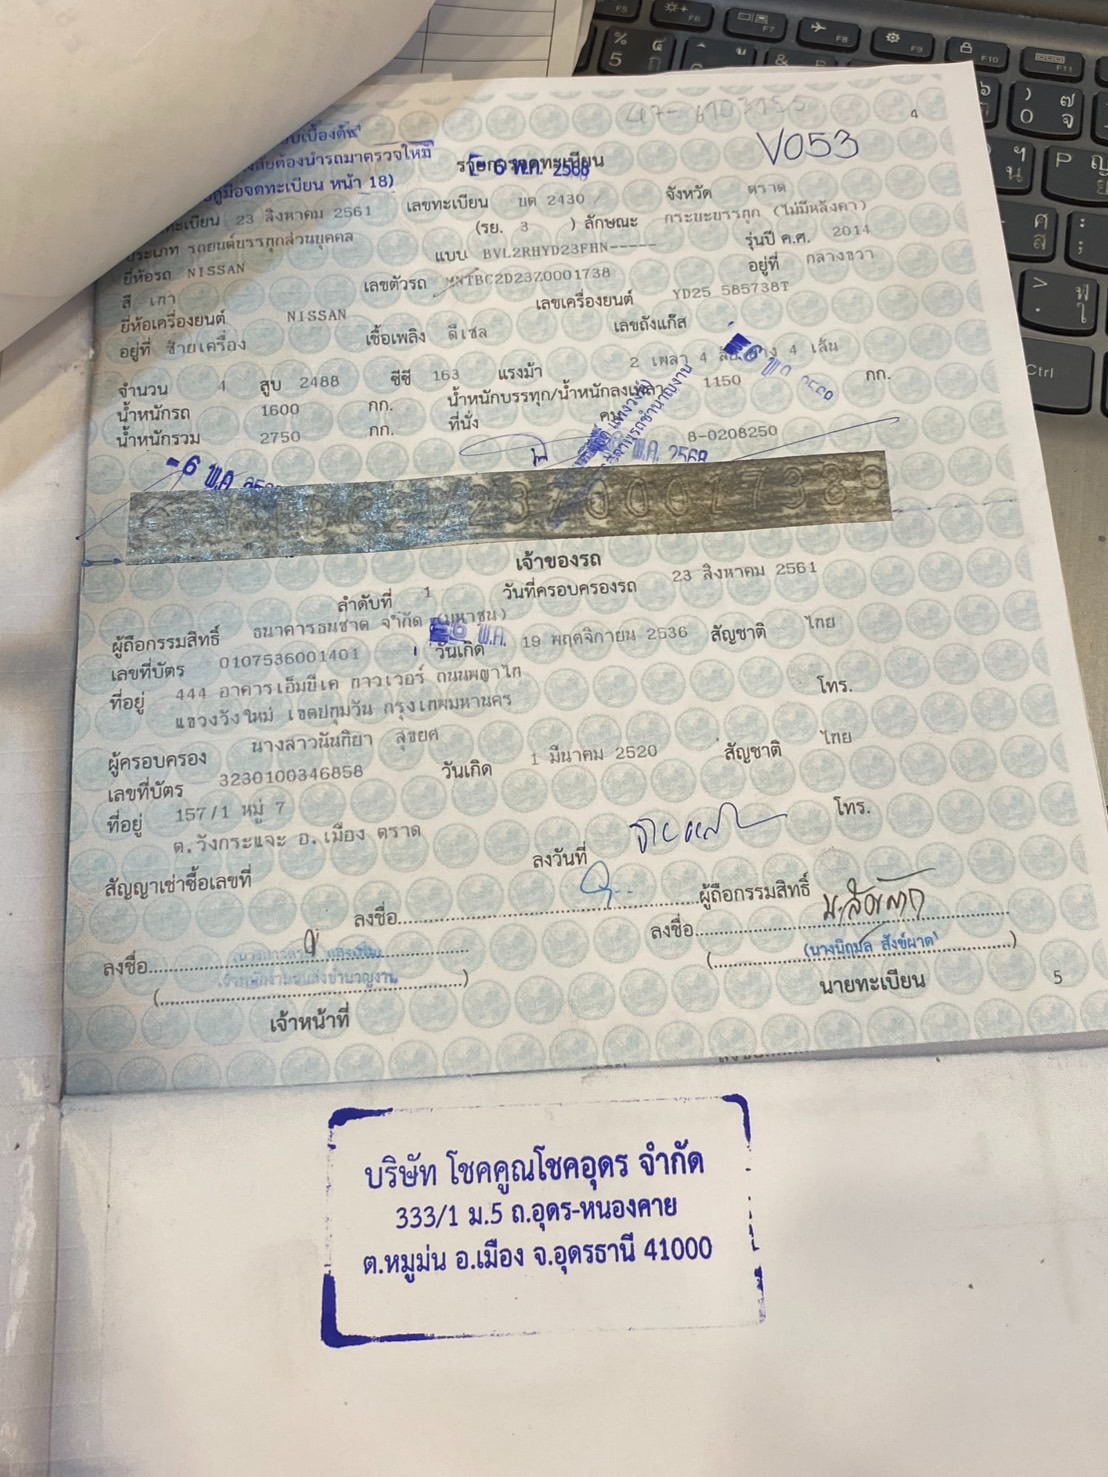 V053
4
รายการจดทะเบียน
- 6 พ.ค. 2568
คู่มือจดทะเบียน หน้า 18)
23 สิงหาคม 2561 เลขทะเบียน บต 2430 จังหวัด ตราด
ประเภท รถยนต์บรรทุกส่วนบุคคล (รย. 3 ) ลักษณะ กระบะบรรทุก (ไม่มีหลังคา)
ยี่ห้อรถ NISSAN แบบ BVL2RHYD23FHN----- รุ่นปี ค.ศ. 2014
สี เทา เลขตัวรถ MNTBC2D23Z0001738 อยู่ที่ กลางขวา
ยี่ห้อเครื่องยนต์ NISSAN เลขเครื่องยนต์ YD25 585738T
อยู่ที่ ซ้ายเครื่อง เชื้อเพลิง ดีเซล เลขถังแก๊ส
จำนวน 4 สูบ 2488 ซีซี 163 แรงม้า 2 เพลา 4 ล้อ ยาง 4 เส้น
น้ำหนักรถ 1600 กก. น้ำหนักบรรทุก/น้ำหนักลงเพลา 1150 กก.
น้ำหนักรวม 2750 กก. ที่นั่ง คน
8-0208250
- 6 พ.ค. 2568
เจ้าของรถ
ลำดับที่ 1 วันที่ครอบครองรถ 23 สิงหาคม 2561
ผู้ถือกรรมสิทธิ์ ธนาคารธนชาต จำกัด (มหาชน)
เลขที่บัตร 0107536001401 วันเกิด 19 พฤศจิกายน 2536 สัญชาติ ไทย
ที่อยู่ 444 อาคารเอ็มบีเค ทาวเวอร์ ถนนพญาไท
แขวงวังใหม่ เขตปทุมวัน กรุงเทพมหานคร โทร.
ผู้ครอบครอง นางสาวนันทิยา สุขยศ
เลขที่บัตร 3230100346858 วันเกิด 1 มีนาคม 2520 สัญชาติ ไทย
ที่อยู่ 157/1 หมู่ 7
ต.วังกระแจะ อ.เมือง ตราด โทร.
สัญญาเช่าซื้อเลขที่ ลงวันที่
ลงชื่อ ผู้ถือกรรมสิทธิ์
ลงชื่อ ลงชื่อ
(นางนิฤมล สังข์ผาด)
เจ้าหน้าที่ นายทะเบียน
5
บริษัท โชคคูณโชคอุดร จำกัด
333/1 ม.5 ถ.อุดร-หนองคาย
ต.หมูม่น อ.เมือง จ.อุดรธานี 41000